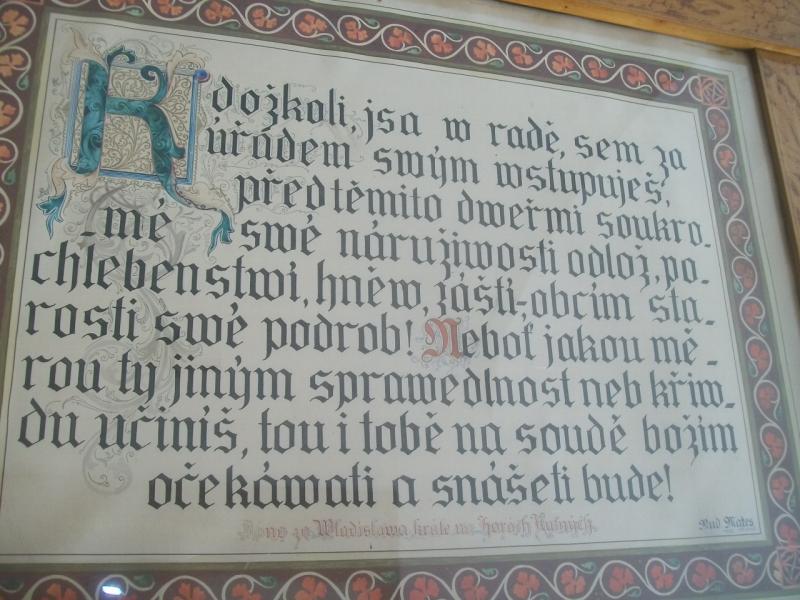 Kdožkoli, jsa w radě, sem za
úřádem swým wstupuješ,
před těmito dweřmi soukro-
-mé swé náruživosti odlož, po-
chlebenstwí, hněw, zášti, obcím sta-
rosti swé podrob! Neboť jakou mě-
rou ty jiným sprawedlnost neb křiw-
du učiníš, tou i tobě na soudě božím
očekáwati a snášeti bude!
za Wladislawa krále na Horách
Rud Mates